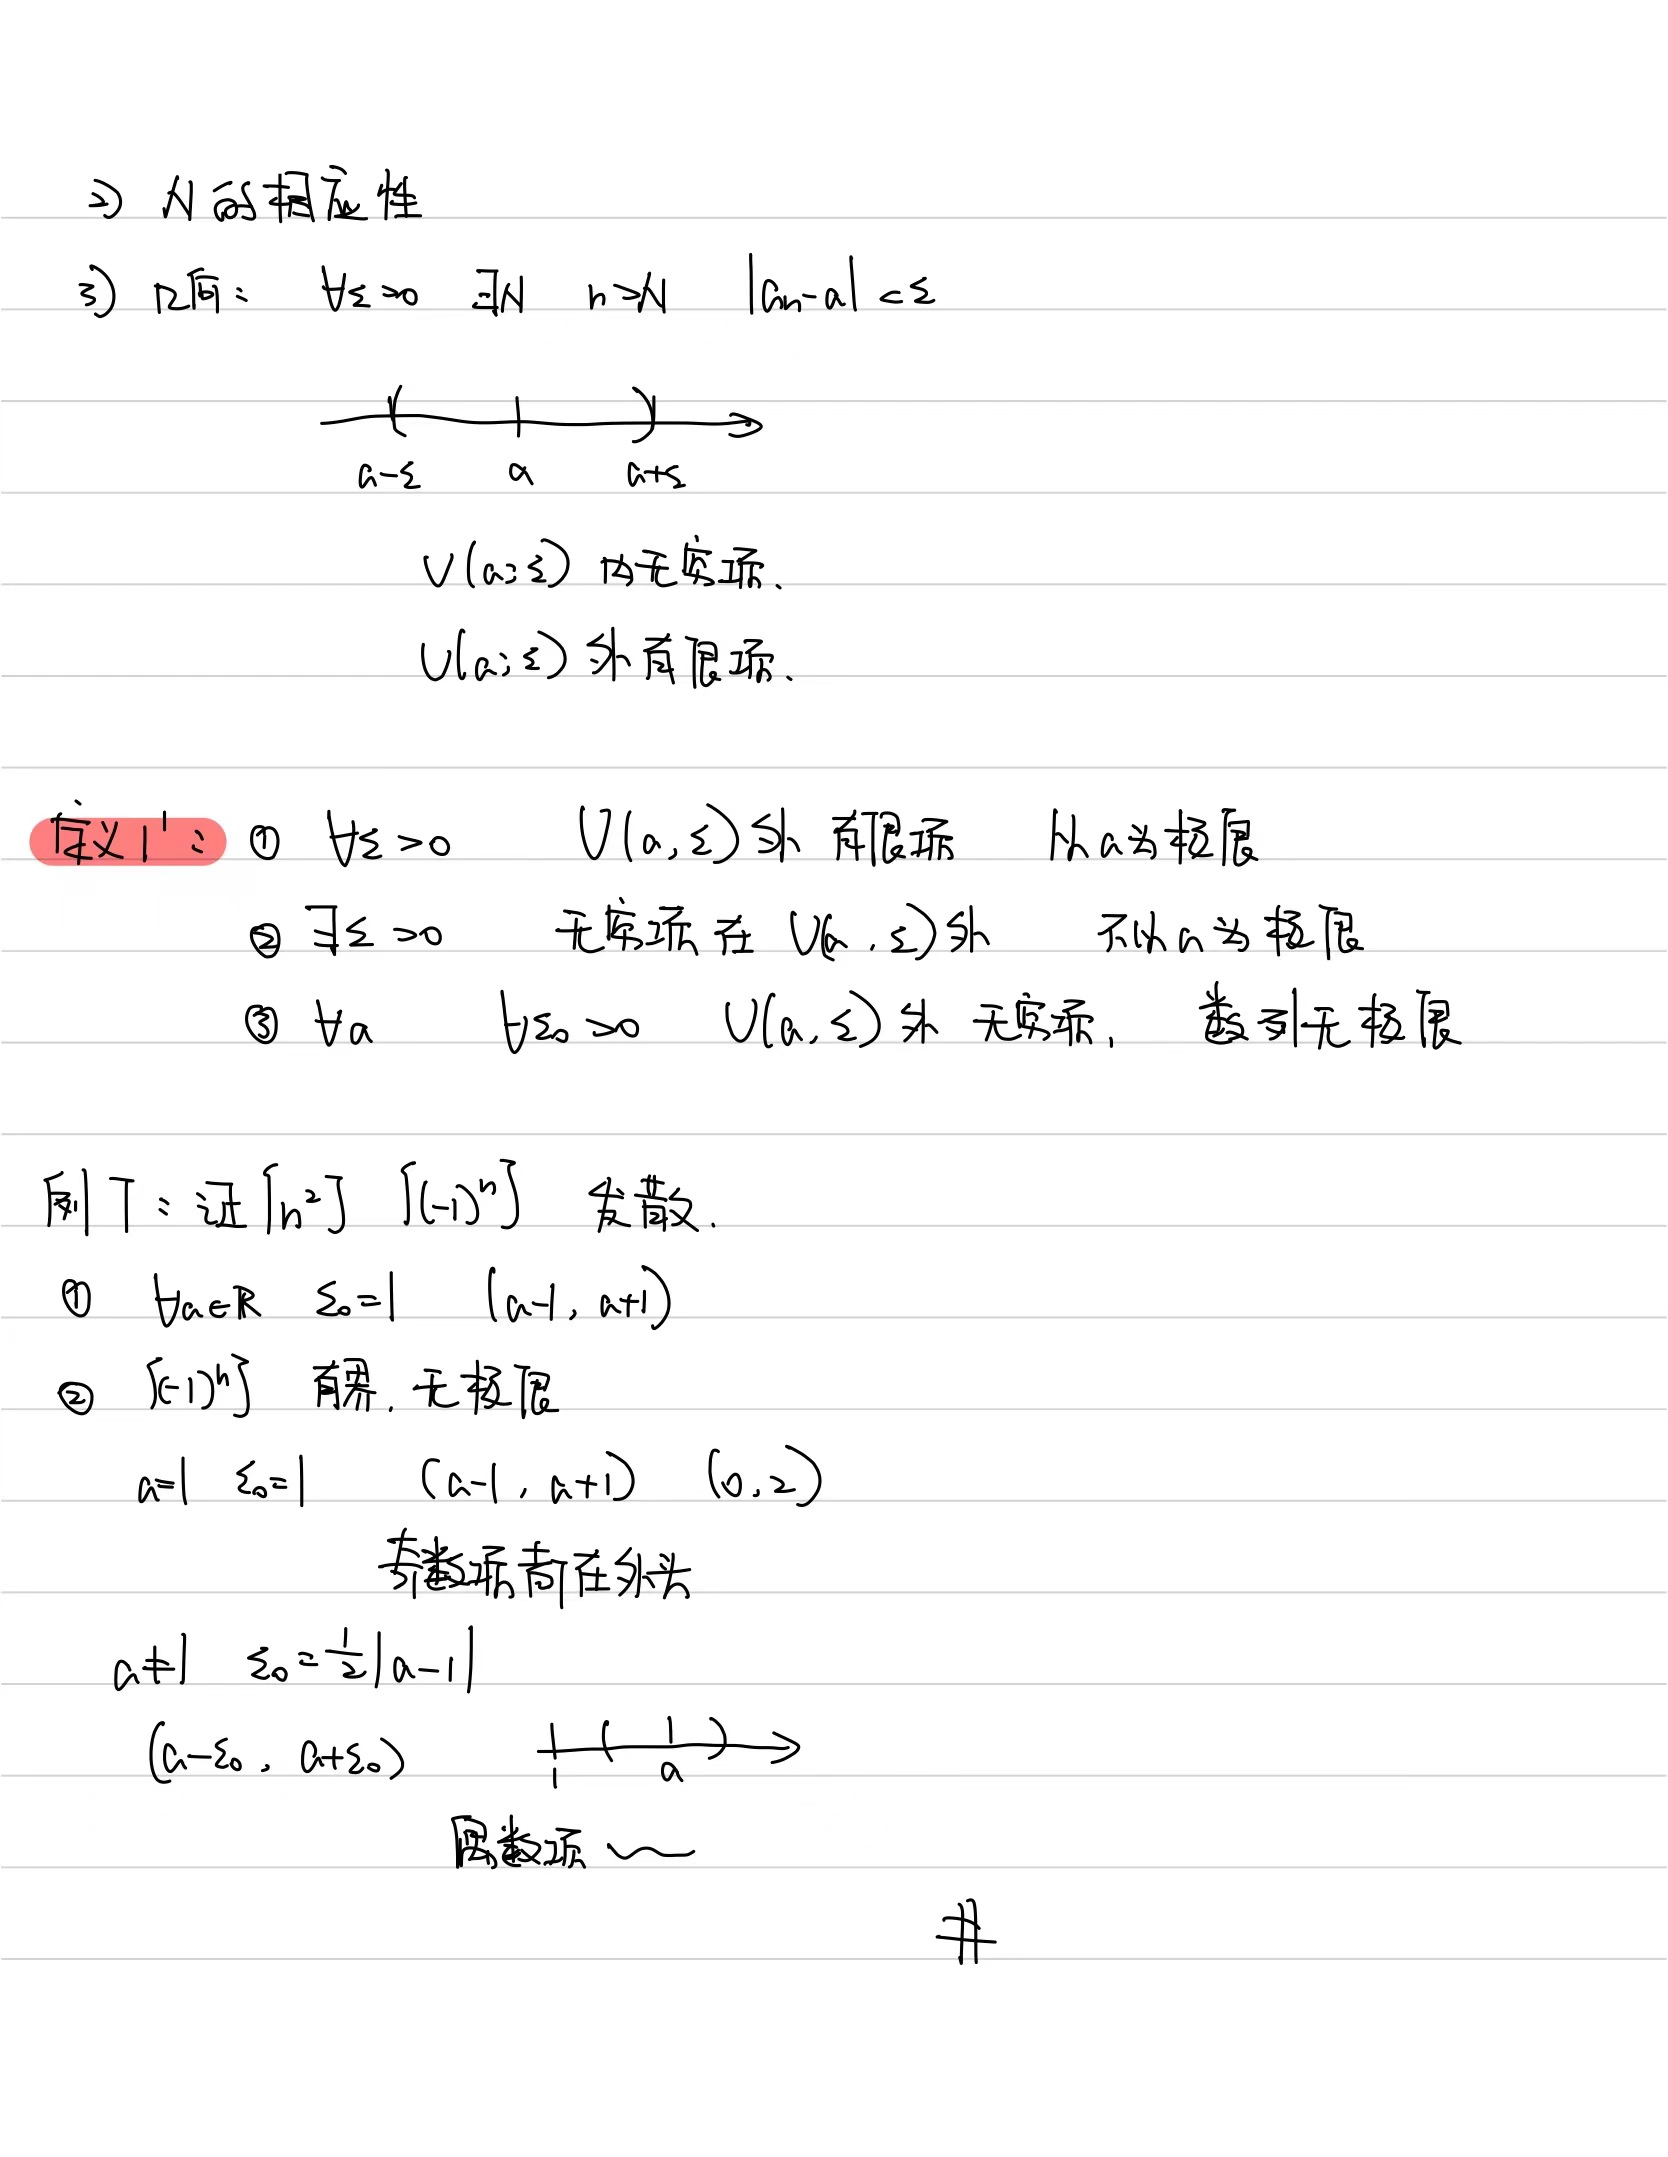 2) N的相应性
3) 几何: ∀ε>0 ∃N n>N |aₙ-a|<ε
a-ε a a+ε
U(a;ε) 内无穷项.
U(a;ε) 外有限项.
定义1': ① ∀ε>0 U(a,ε)外 有限项 以a为极限
② ∃ε>0 无穷项在 U(a,ε)外 不以a为极限
③ ∀a ∀ε₀>0 U(a,ε)外 无穷项, 数列无极限
例7: 证[n²] [(-1)ⁿ] 发散.
① ∀a∈R ε₀=1 (a-1, a+1)
② [(-1)ⁿ] 有界, 无极限
a=1 ε₀=1 (a-1, a+1) (0,2)
奇数项都在外头
a≠1 ε₀=½|a-1|
(a-ε₀, a+ε₀) 1 a
偶数项
#